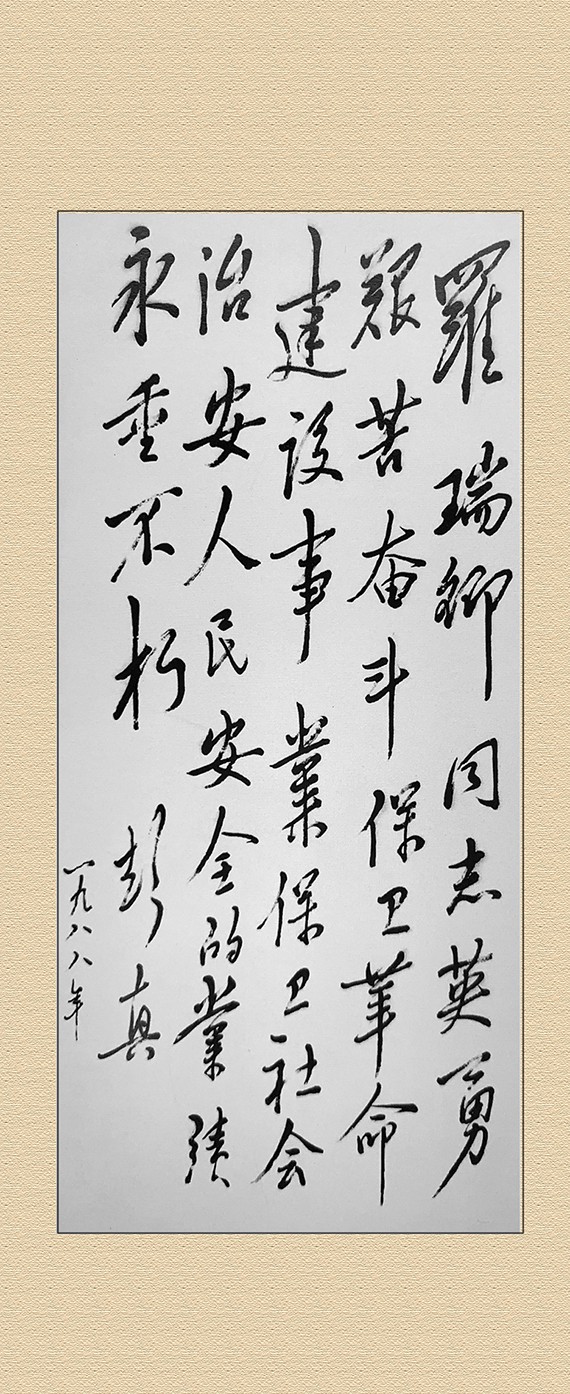 羅瑞卿同志英勇
艰苦奋斗保卫革命
建设事業保卫社会
治安人民安全的業绩
永垂不朽
彭真
一九八八年